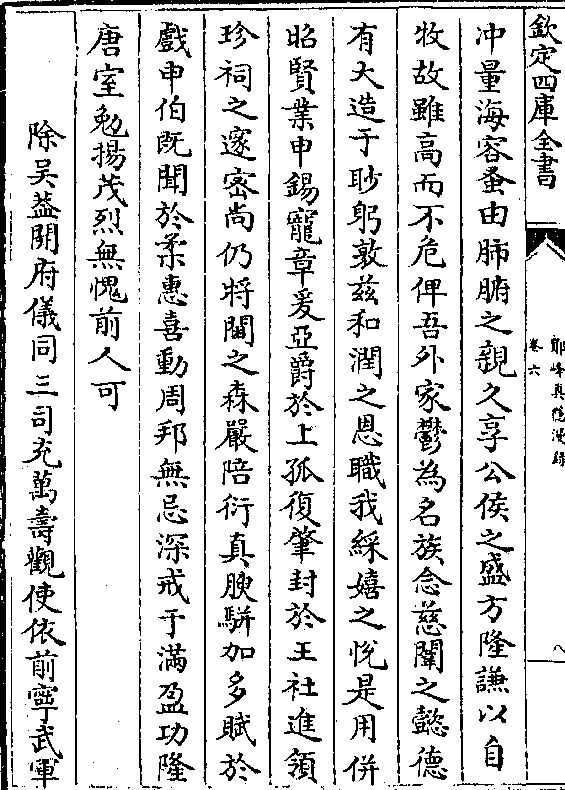 欽定四庫全書
鄮峰真隱漫錄
卷六
八
冲量海容蚤由肺腑之親久享公侯之盛方隆謙以自
牧故雖高而不危俾吾外家鬱為名族念慈闈之懿德
有大造于眇躬敦兹和潤之恩職我綵嬉之悅是用併
昭賢業申錫寵章爰亞爵於上孤復肇封於王社進領
珍祠之邃密尚仍將閫之森嚴陪衍真腴駢加多賦於
戲申伯既聞於柔惠喜動周邦無忌深戒于滿盈功隆
唐室勉揚茂烈無愧前人可
除吴葢開府儀同三司充萬壽觀使依前寧武軍